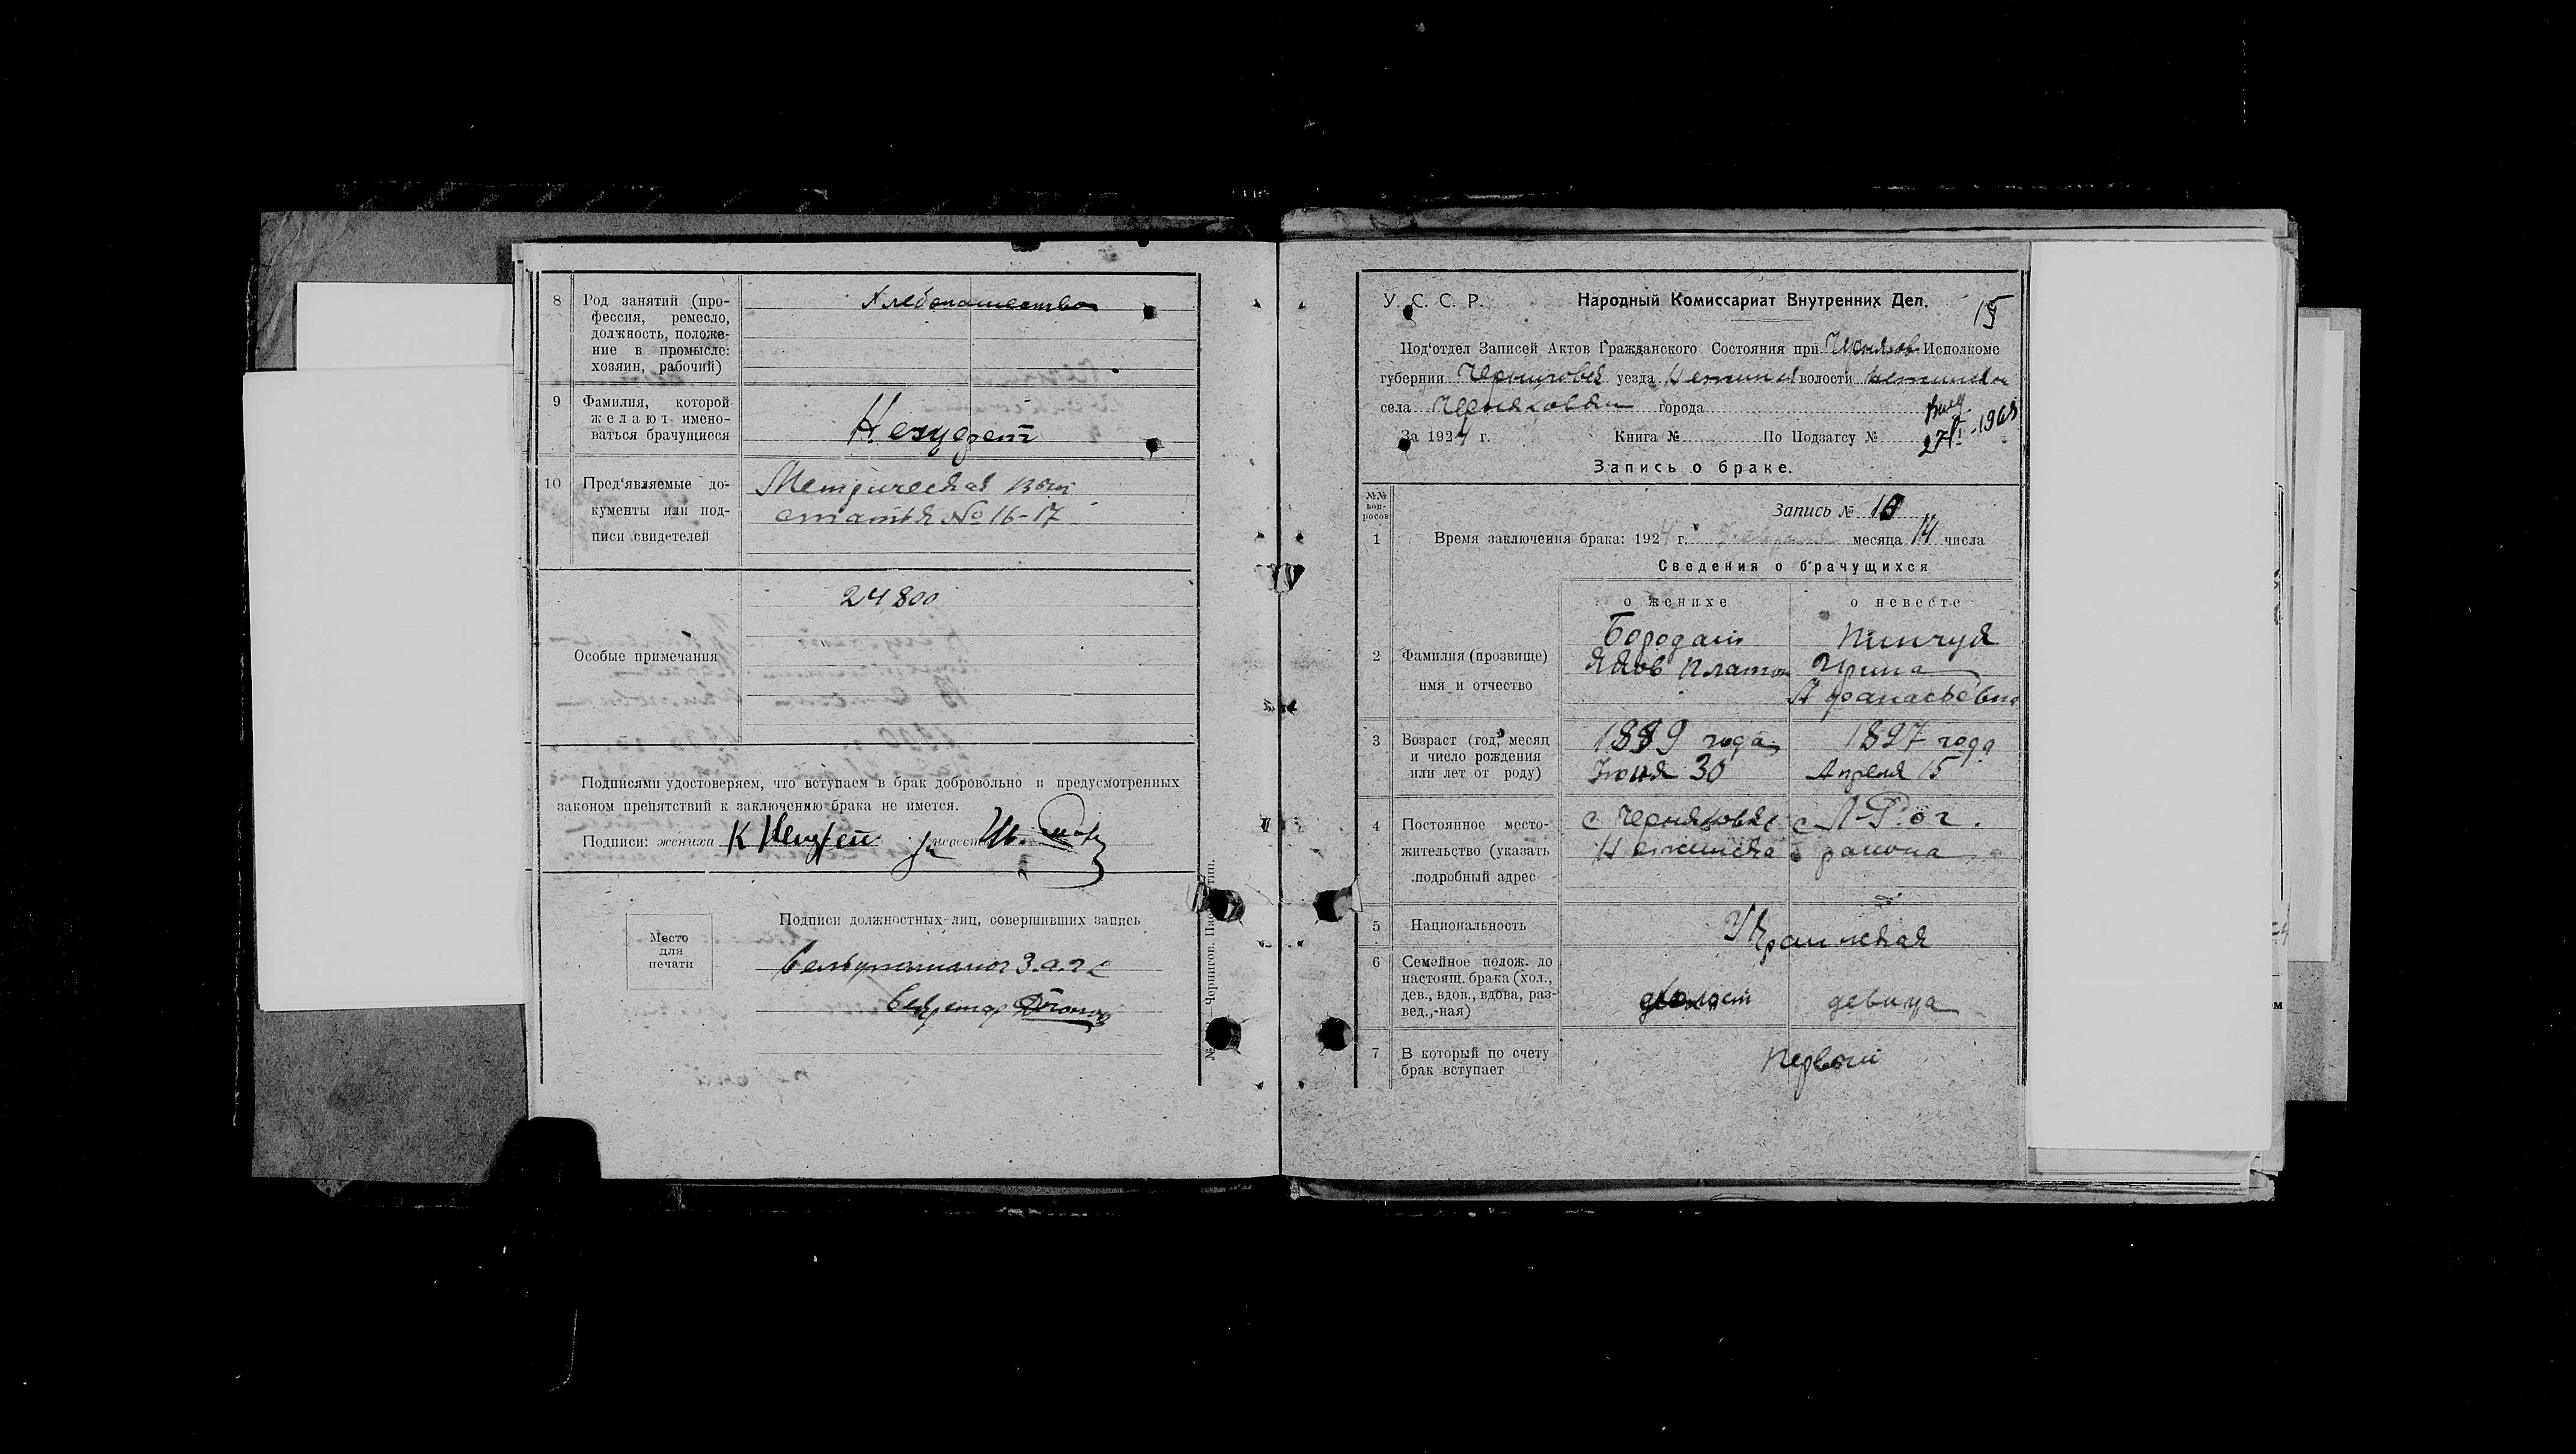 8 Род занятий (про-
фессия, ремесло,
должность, положе-
ние в промысле:
хозяин, рабочий)
Хлебопашество
9 Фамилия, которой
желают имено-
ваться брачущиеся
10 Пред'являемые до-
кументы или под-
писи свидетелей
Метрическая
статья № 16-17
Особые примечания
24800
Подписями удостоверяем, что вступаем в брак добровольно и предусмотренных
законом препятствий к заключению брака не имется.
Подписи: жениха невест
Место
для
печати
Подписи должностных лиц, совершивших запись
Секретар
15
У. С. С. Р. Народный Комиссариат Внутренних Дел.
Под'отдел Записей Актов Гражданского Состояния при Черняхов Исполкоме
губернии Черниговск уезда волости
села Черняховки города
За 1924 г. Книга № По Подзагсу №
1968
Запись о браке.
№№ воп-
росов
Запись № 10
1 Время заключения брака: 1924 г. Февраля месяца 14 числа
Сведения о брачущихся
о женихе о невесте
2 Фамилия (прозвище)
имя и отчество
Бородат
Яков Платон
Пинчук
Ирина
Афанасьевна
3 Возраст (год, месяц
и число рождения
или лет от роду)
1889 года
Июня 30
1897 года
Апреля 15
4 Постоянное место-
жительство (указать
подробный адрес
с Черняховке с Л-Рог.
Нежинска района
5 Национальность
Украинская
6 Семейное полож. до
настоящ. брака (хол.,
дев., вдов., вдова, раз-
вед.,-ная)
девица
7 В который по счету
брак вступает
Первый